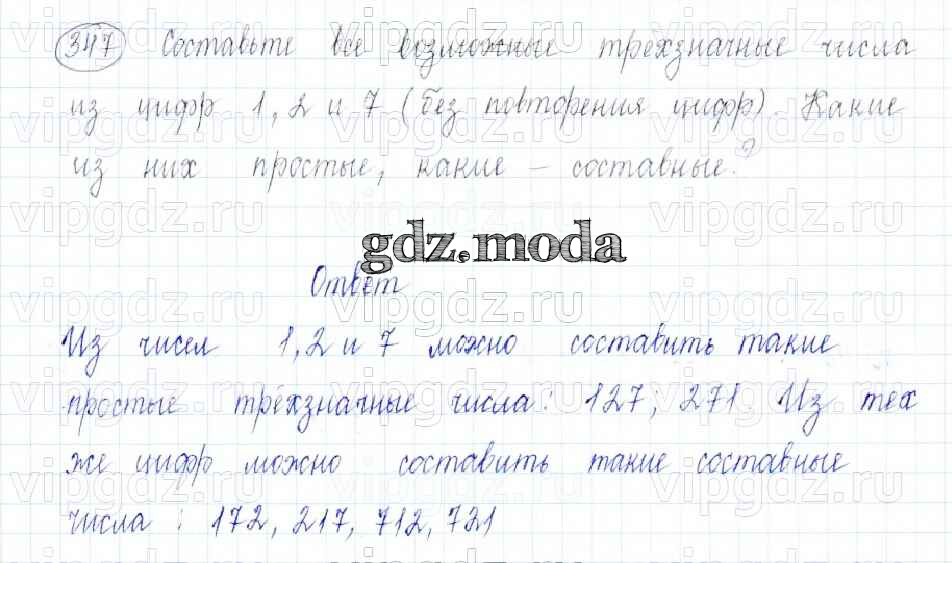 347 Составьте все возможные трёхзначные числа
из цифр 1, 2 и 7 (без повторения цифр). Какие
из них простые, какие – составные?
gdz.moda
Ответ
Из чисел 1, 2 и 7 можно составить такие
простые трёхзначные числа: 127; 271. Из тех
же цифр можно составить такие составные
числа : 172, 217, 712, 721
vipgdz.ru